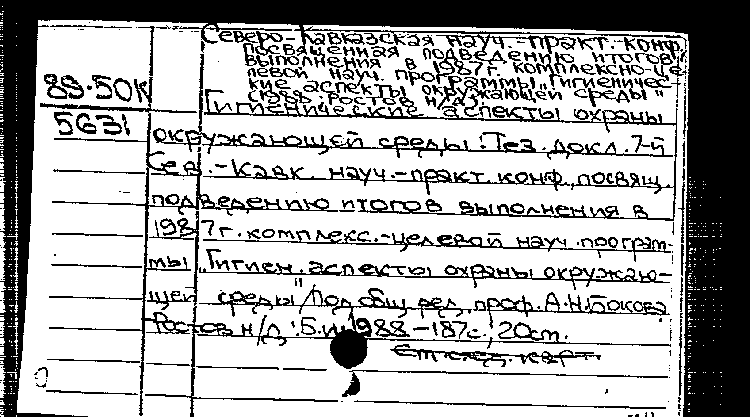 Северо-Кавказская науч.-практ. конф.,
посвященная подведению итогов
выполнения в 1987г. комплексно-це
левой науч. программы „Гигиеничес-
кие аспекты окружающей среды"
(1988; Ростов н/Д).
88-50К
5631
Гигиенические аспекты охраны
окружающей среды: Тез. докл. 7-й
Сев.-Кавк. науч.-практ. конф., посвящ.
подведению итогов выполнения в
1987г. комплекс.-целевой науч. програм-
мы „Гигиен. аспекты охраны окружаю-
щей среды"/Под общ. ред. проф. А.Н. Бокова.
Ростов н/Д: Б.и., 1988.-187с.; 20см.
См. след. карт.